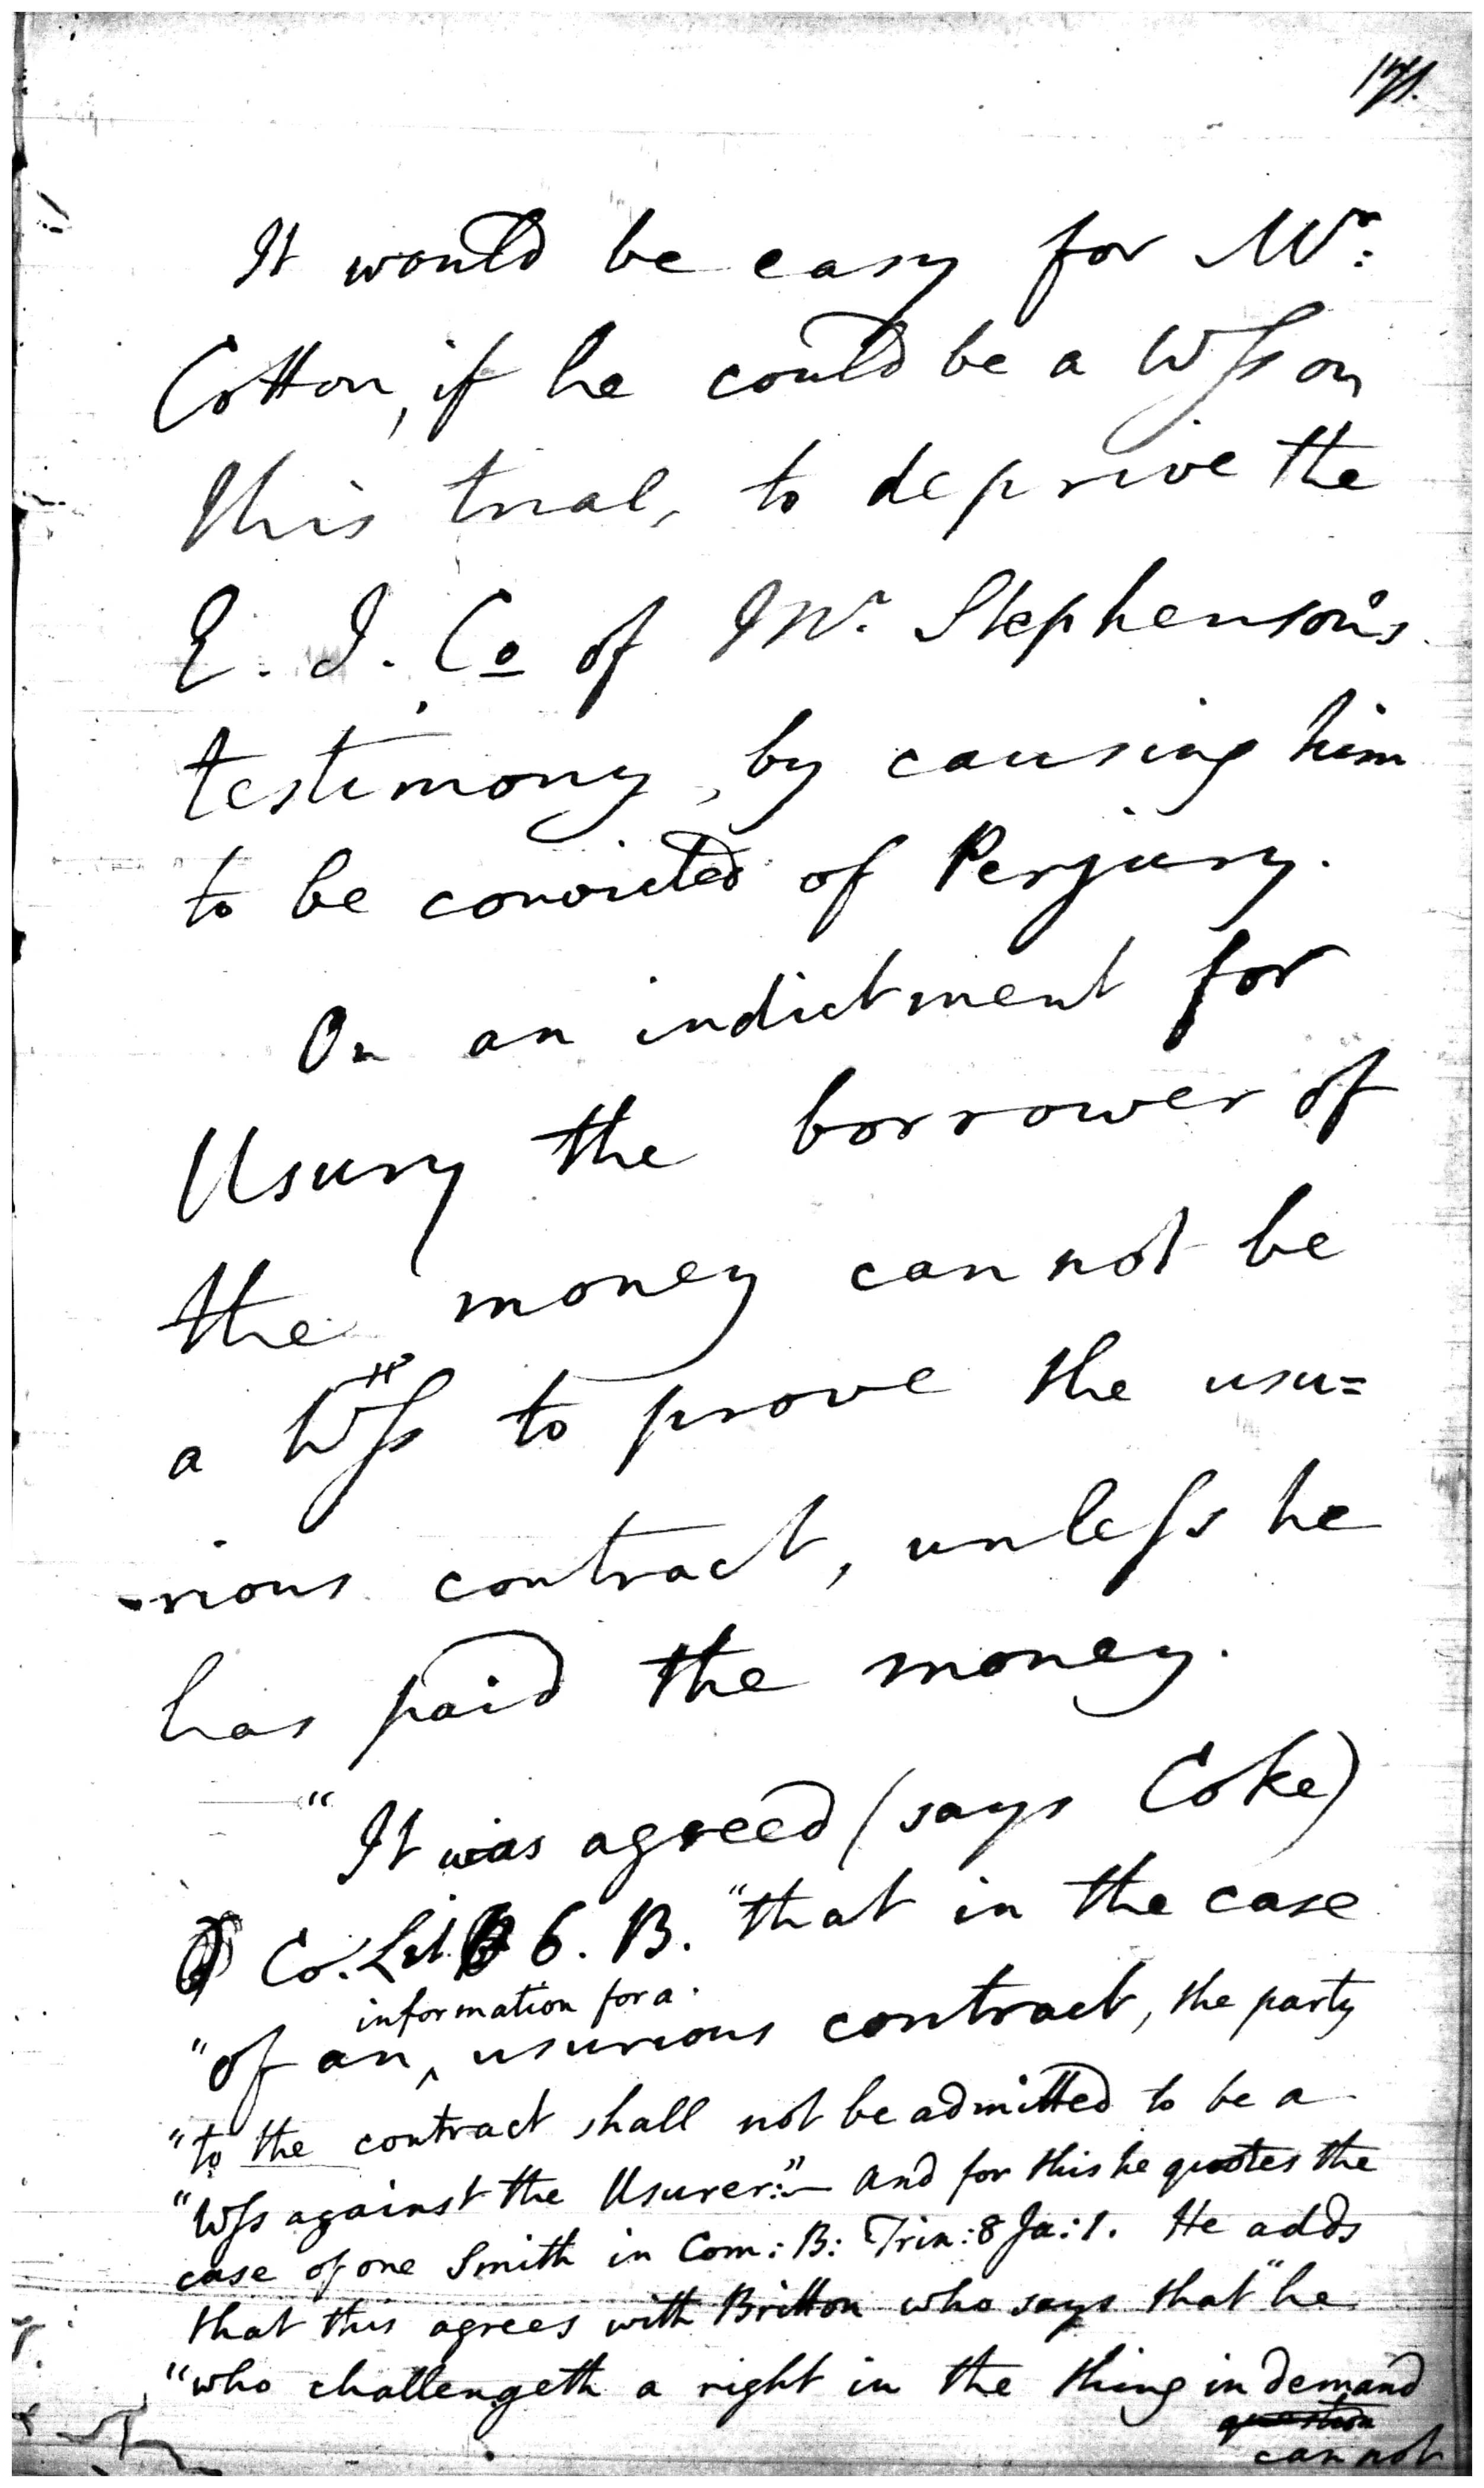 171.
It would be easy for Mr:
Cotton, if he could be a Wſs on
this trial, to deprive the
E. I. Co of Mr. Stephenson's
testimony, by causing him
to be convicted of Perjury.
On an indictment for
Usury the borrower of
the money cannot be
a Wſs to prove the usu=
-rious contract, unleſs he
has paid the money.
"It was agreed (says Coke)
Co. Lit. 6. B. "that in the case
information for a
"of an ^ usurious contract, the party
"to the contract shall not be admitted to be a
"Wſs against the Usurer:"— and for this he quotes the
case of one Smith in Com: B: Trin: 8 Ja: 1. He adds
that this agrees with Britton who says that "he
"who challengeth a right in the thing in demand
question
cannot